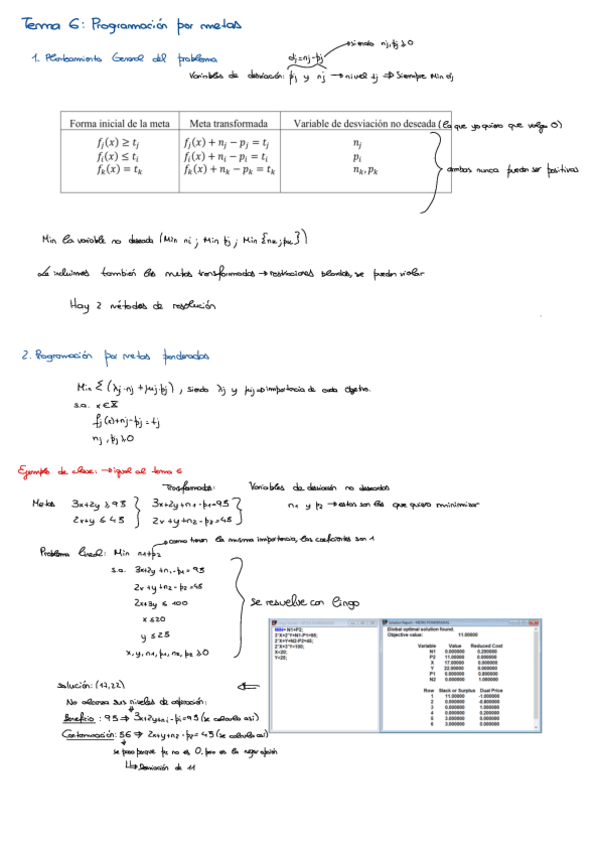 Tema 6: Programación por metas
1. Planteamiento General del problema
dj = nj - pj → siendo nj, pj ≥ 0
Variables de desviación: pj y nj → nivel tj ⇒ Siempre Min dj
Forma inicial de la meta Meta transformada Variable de desviación no deseada (la que yo quiero que valga 0)
fj(x) ≥ tj fj(x) + nj − pj = tj nj
fi(x) ≤ ti fi(x) + ni − pi = ti pi
fk(x) = tk fk(x) + nk − pk = tk nk, pk
ambas nunca pueden ser positivas
Min la variable no deseada (Min ni ; Min pj ; Min {nk; pk})
incluimos también las metas transformadas → restricciones blandas, se pueden violar
Hay 2 métodos de resolución
2. Programación por metas ponderadas
Min Σ (λj·nj + μj·pj), siendo λj y μj importancia de cada objetivo.
s.a. x ∈ X
fj(x) + nj - pj = tj
nj, pj ≥ 0
Ejemplo de clase: → igual al tema 6
Transformadas: Variables de desviación no deseadas
Metas 3x+2y ≥ 95 3x+2y+n1-p1=95 n1 y p2 → estas son las que quiero minimizar
2x+y ≤ 45 2x+y+n2-p2=45
como tienen la misma importancia, los coeficientes son 1
Problema lineal: Min n1+p2
s.a. 3x+2y+n1-p1=95
2x+y+n2-p2=45
2x+3y ≤ 100
x ≤ 20
y ≤ 25
x, y, n1, p1, n2, p2 ≥ 0
se resuelve con Lingo
Global optimal solution found.
Objective value: 11.00000
Variable Value Reduced Cost
N1 0.000000 0.200000
P2 11.00000 0.000000
X 17.00000 0.000000
Y 22.00000 0.000000
P1 0.000000 0.800000
N2 0.000000 1.000000
Row Slack or Surplus Dual Price
1 11.00000 -1.000000
2 0.000000 -0.800000
3 0.000000 1.000000
4 0.000000 0.200000
5 3.000000 0.000000
6 3.000000 0.000000
solución: (17,22)
No alcanza sus niveles de aspiración:
Beneficio: 95 ⇒ 3x+2y+n1-p1=95 (se calcula así)
Contaminación: 56 ⇒ 2x+y+n2-p2=45 (se calcula así)
se pasa porque p2 no es 0, pero es la mejor opción
Desviación de 11